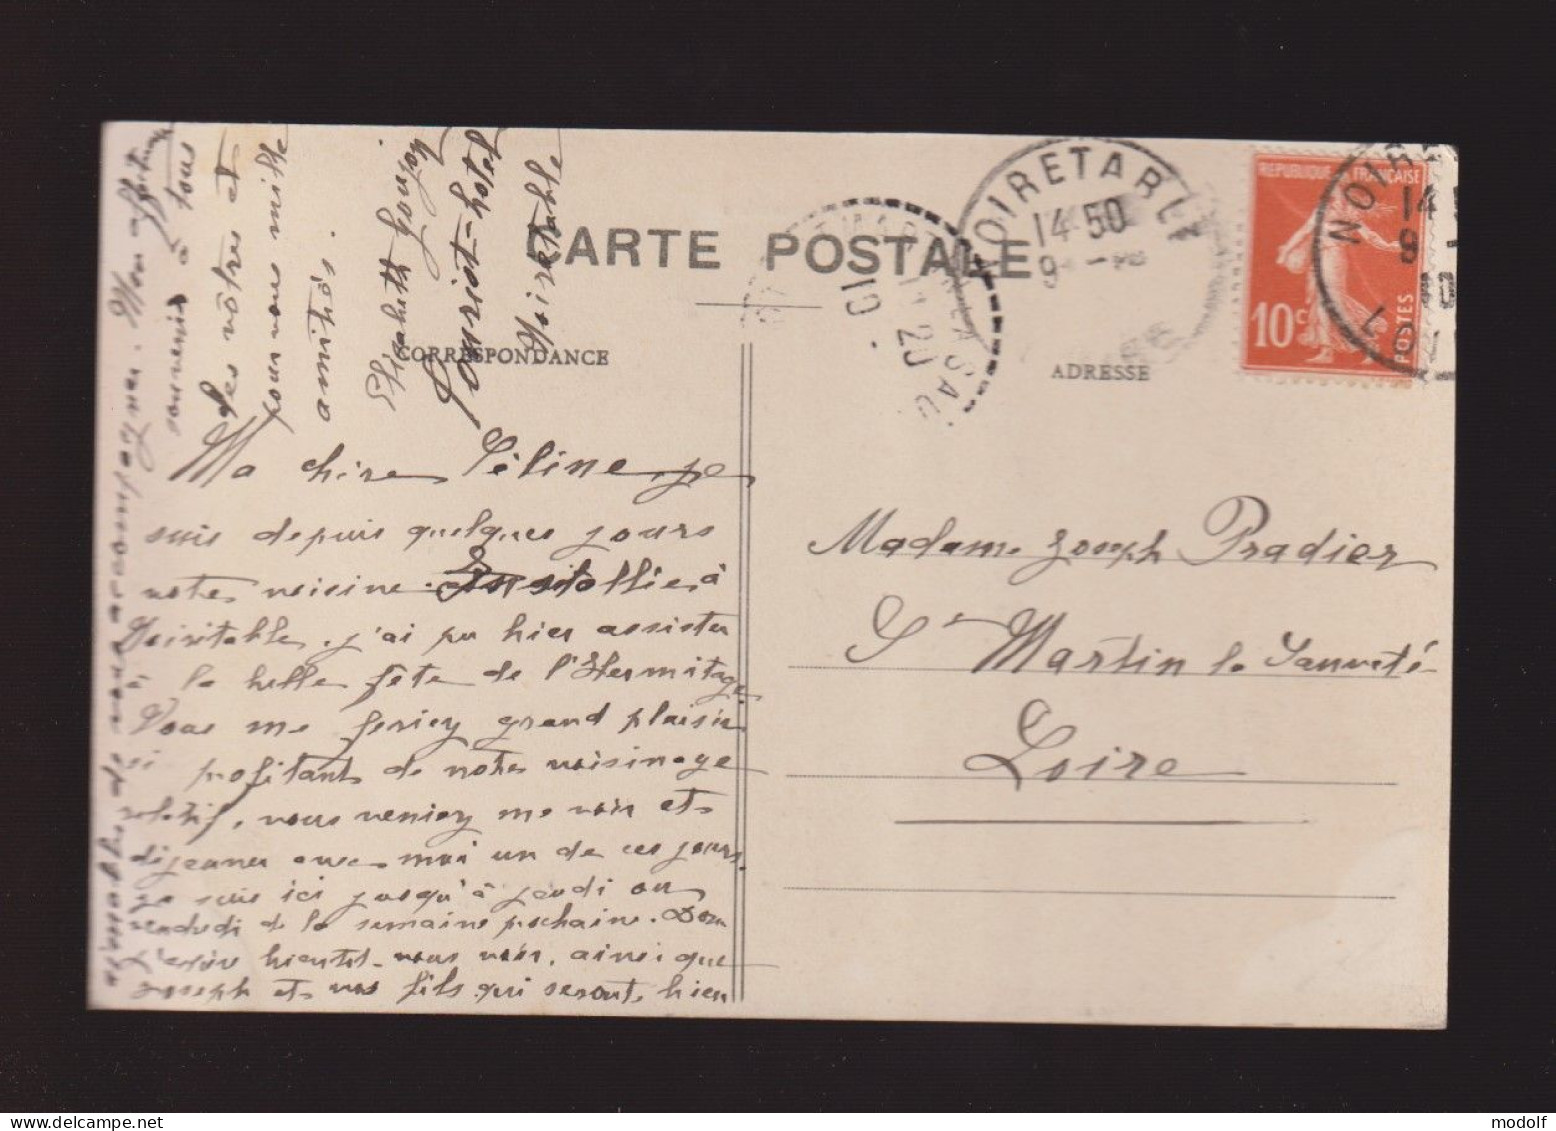 CARTE POSTALE
CORRESPONDANCE
ADRESSE
REPUBLIQUE FRANÇAISE
10c
POSTES
NOIRETABLE
14-50
9
NOIR
14
9
10
20
10
Ma chère Céline, je
suis depuis quelques jours
votre voisine à
Noirétable, j'ai pu hier assister
à la belle fête de l'Hermitage
Vous me feriez grand plaisir
si profitant de notre voisinage
relatif, vous veniez me voir et
déjeuner avec moi un de ces jours.
je suis ici jusqu'à jeudi ou
vendredi de la semaine prochaine. Donc
j'espère bientôt vous voir, ainsi que
Joseph et vos fils qui seront bien
aimables de vous accompagner. Mon affectueux
souvenir à tous
les vôtres et
pour vous mille
amitiés.
Madame Joseph Pradier
St Martin la Sauveté
Loire
modolf